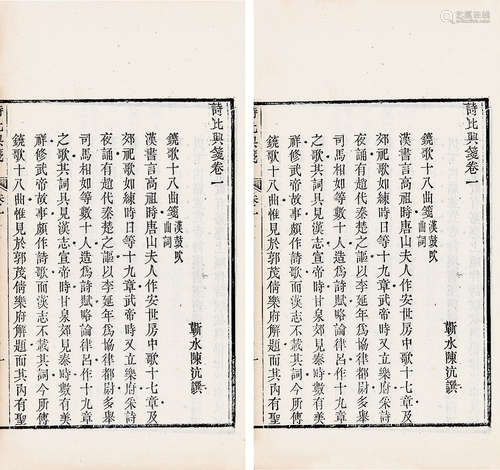 詩比興箋卷一
蘄水陳沆譔
鐃歌十八曲箋漢鼓吹曲詞
漢書言高祖時唐山夫人作安世房中歌十七章及
郊祀歌如練時日等十九章武帝時又立樂府采詩
夜誦有趙代秦楚之謳以李延年爲協律都尉多舉
司馬相如等數十人造爲詩賦略論律呂作十九章
之歌其詞具見漢志宣帝時甘泉郊見泰畤數有美
祥修武帝故事頗作詩歌而漢志不載其詞今所傳
鐃歌十八曲惟見於郭茂倩樂府解題而其內有聖
詩比興箋 卷一 一
詩比興箋卷一
蘄水陳沆譔
鐃歌十八曲箋漢鼓吹曲詞
漢書言高祖時唐山夫人作安世房中歌十七章及
郊祀歌如練時日等十九章武帝時又立樂府采詩
夜誦有趙代秦楚之謳以李延年爲協律都尉多舉
司馬相如等數十人造爲詩賦略論律呂作十九章
之歌其詞具見漢志宣帝時甘泉郊見泰畤數有美
祥修武帝故事頗作詩歌而漢志不載其詞今所傳
鐃歌十八曲惟見於郭茂倩樂府解題而其內有聖
詩比興箋 卷一 一